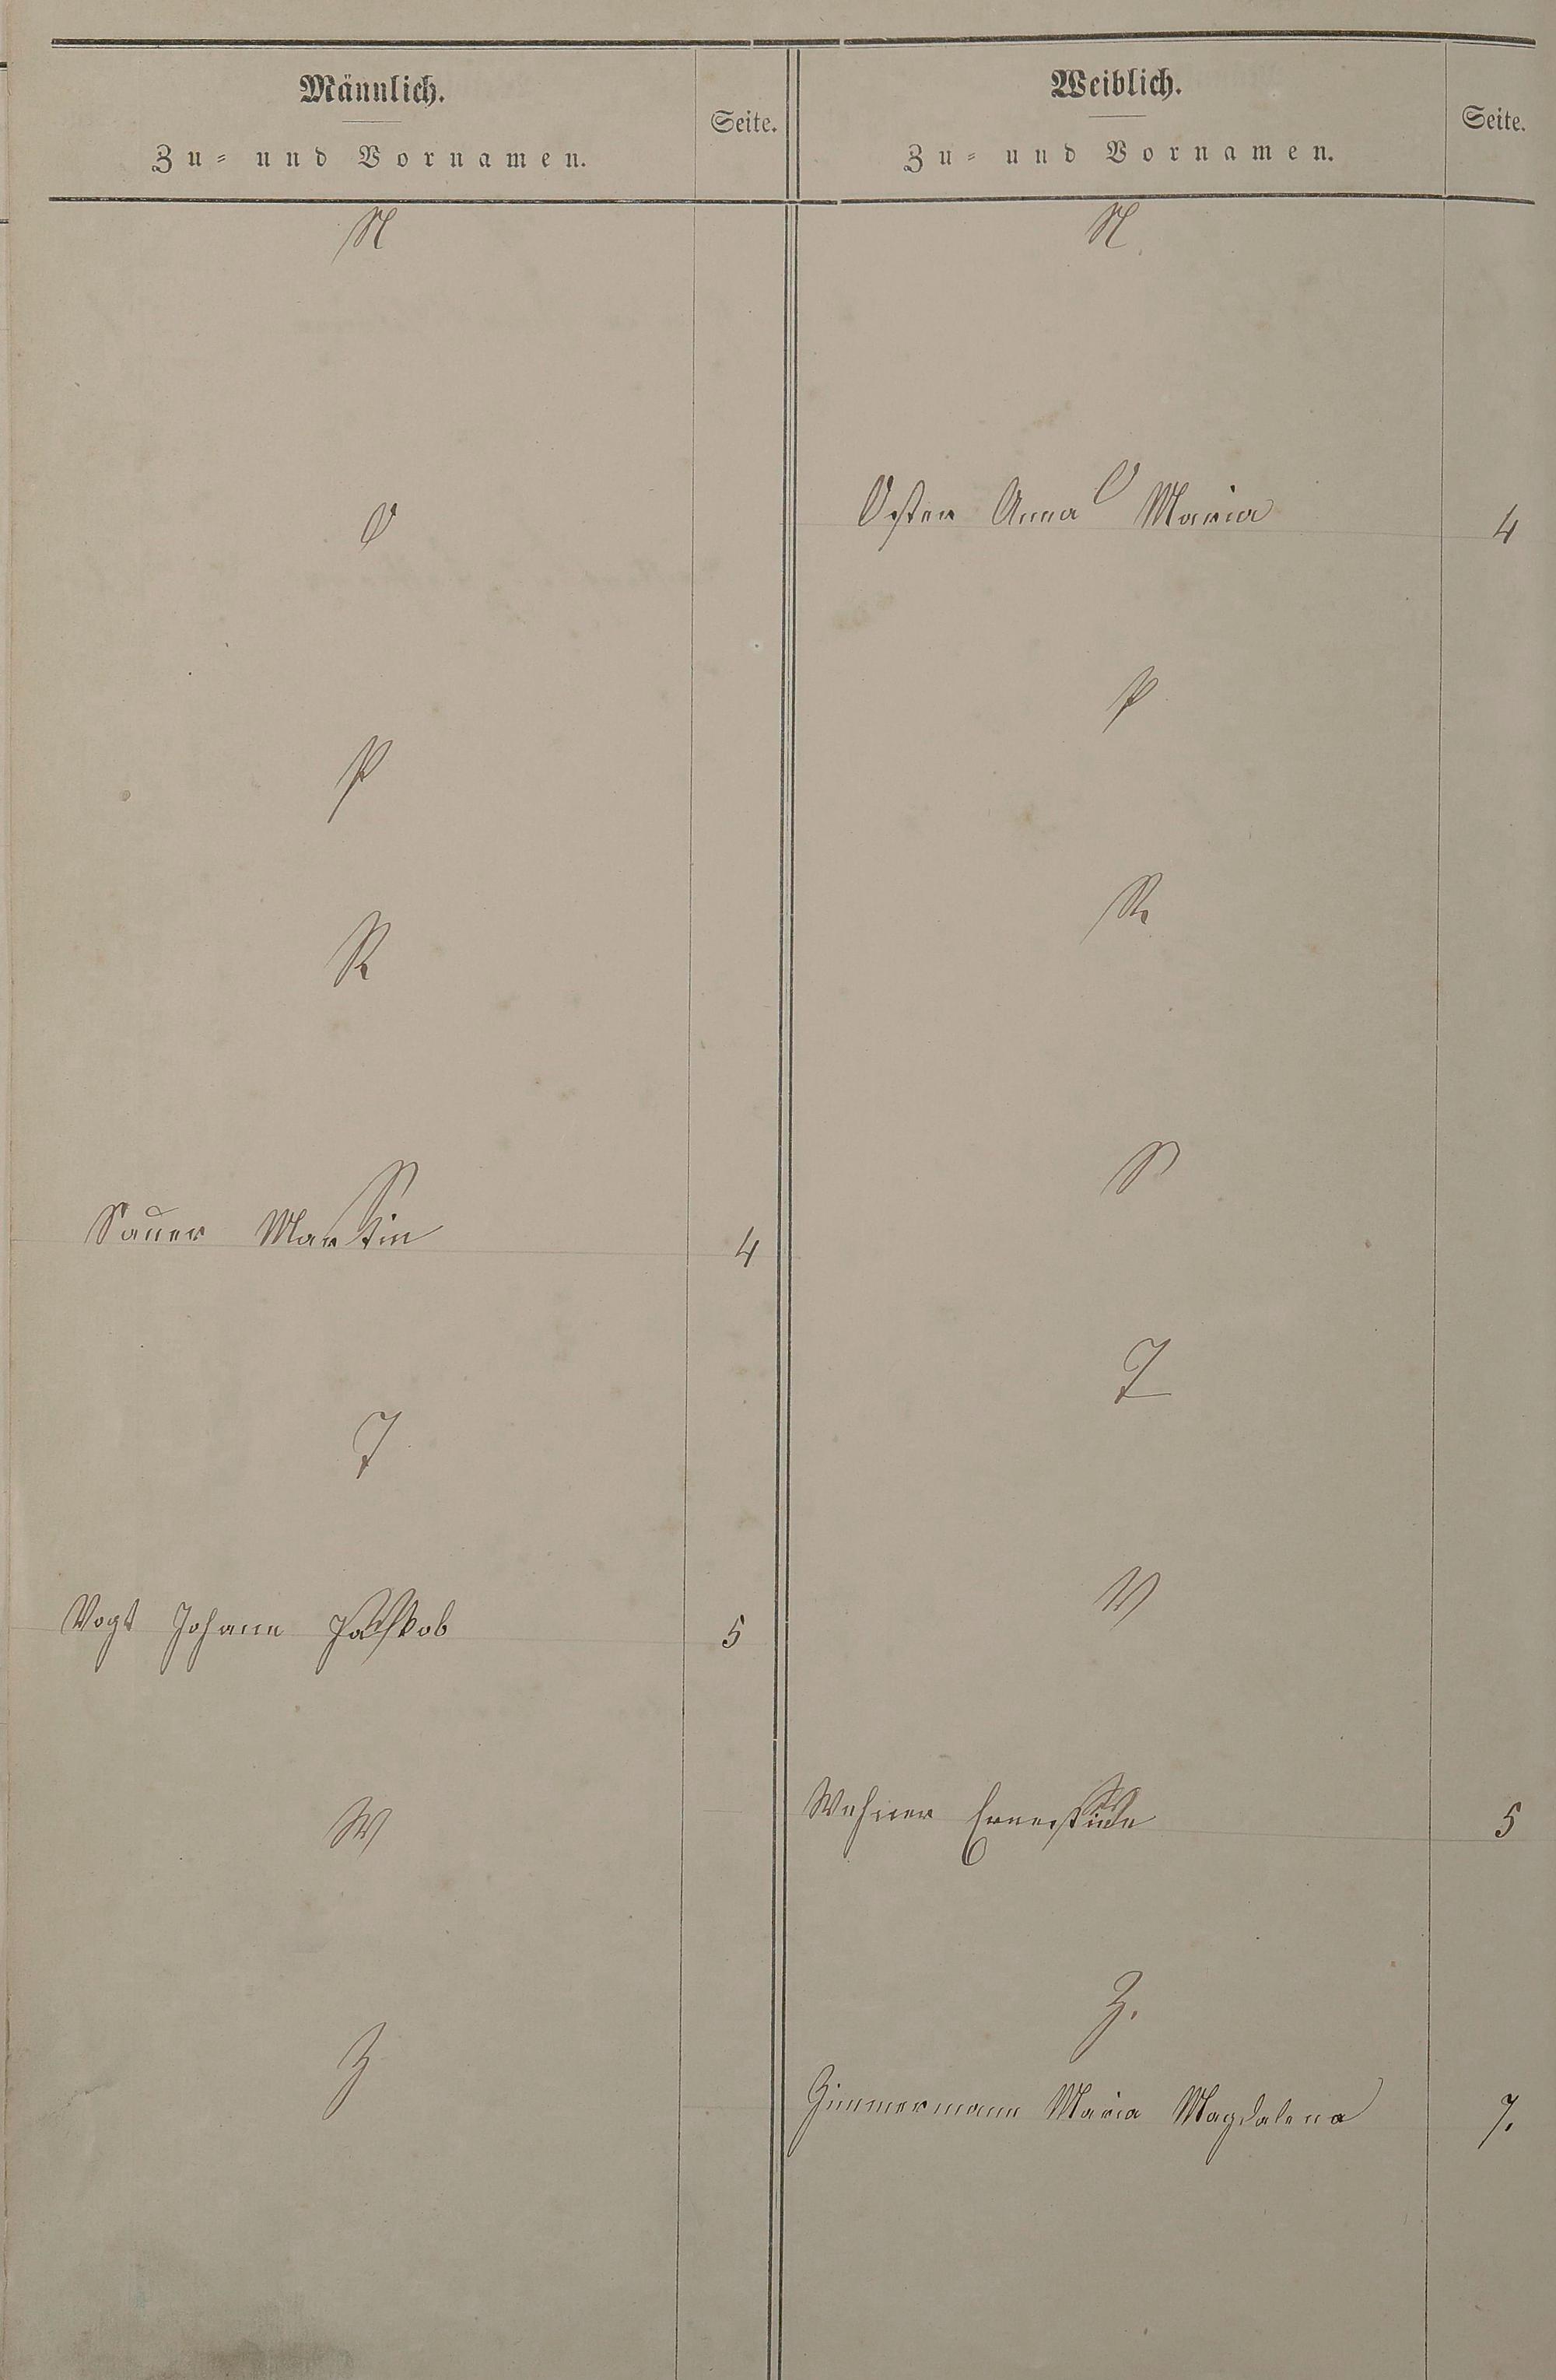 Männlich.
Zu- und Vornamen.
Seite.
N
O
P
R
S
Sauer Martin 4
T
V
Vogt Johann Jakob 5
W
Z
Weiblich.
Zu- und Vornamen.
Seite.
N
O
Oster Anna Maria 4
P
R
S
T
V
W
Wehner Ernestine 5
Z.
Zimmermann Maria Magdalena 7.